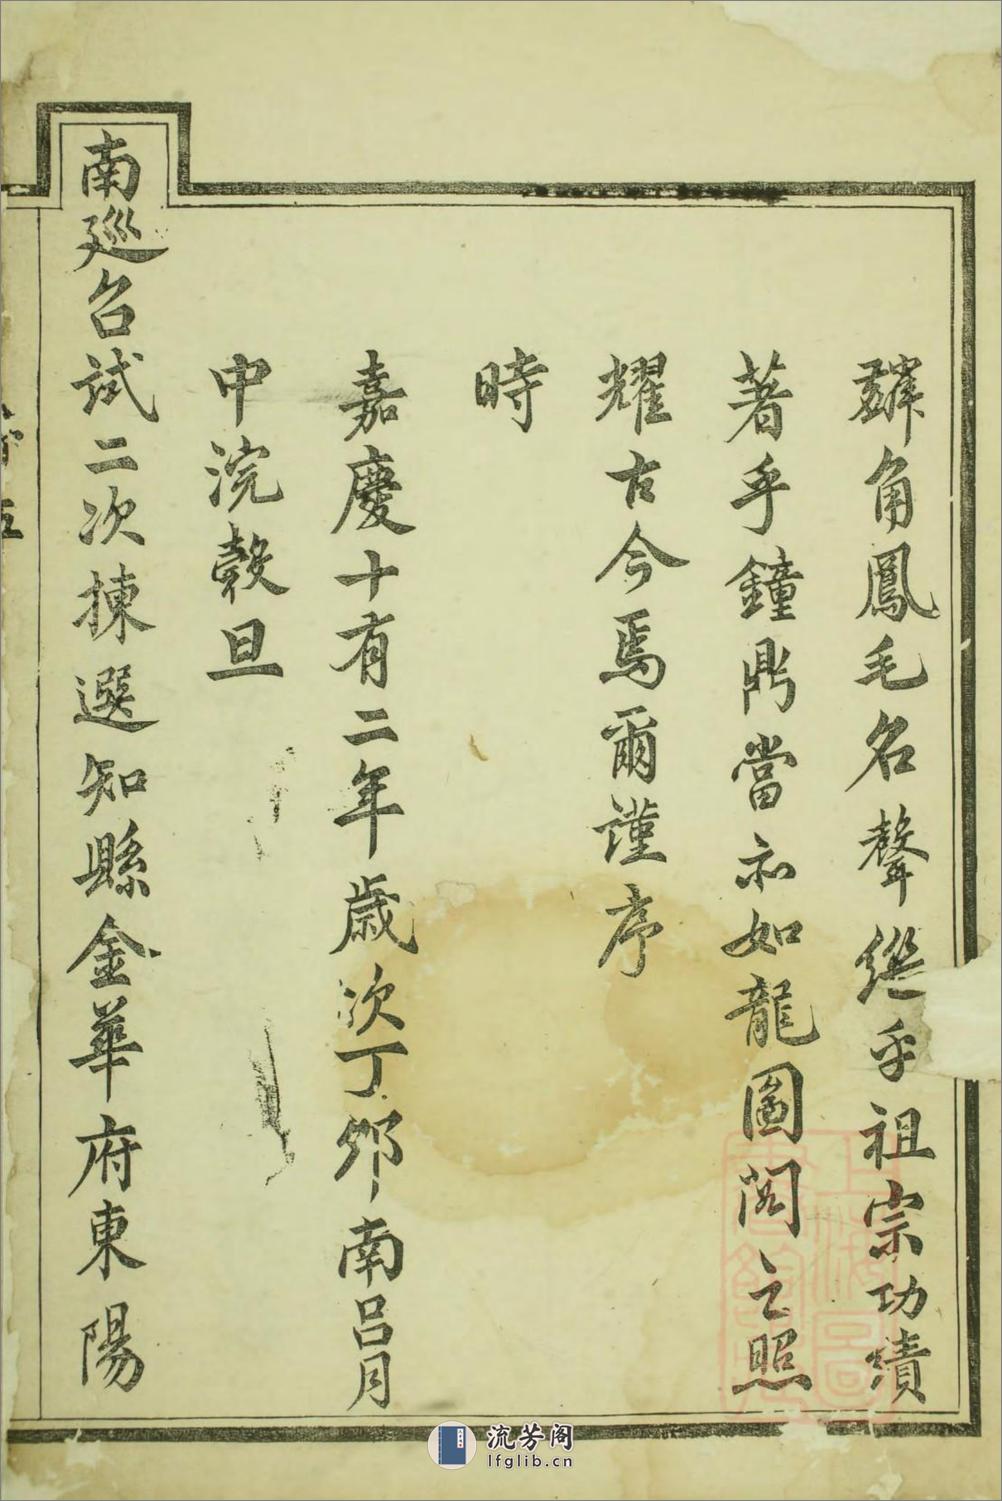 麟角鳳毛名聲繼乎祖宗功績
著乎鐘鼎當亦如龍圖閣之照
耀古今焉爾謹序
時
嘉慶十有二年歲次丁夘南呂月
中浣穀旦
南廵召試二次揀選知縣金華府東陽
五
上海圖書館藏
流芳阁
lfglib.cn